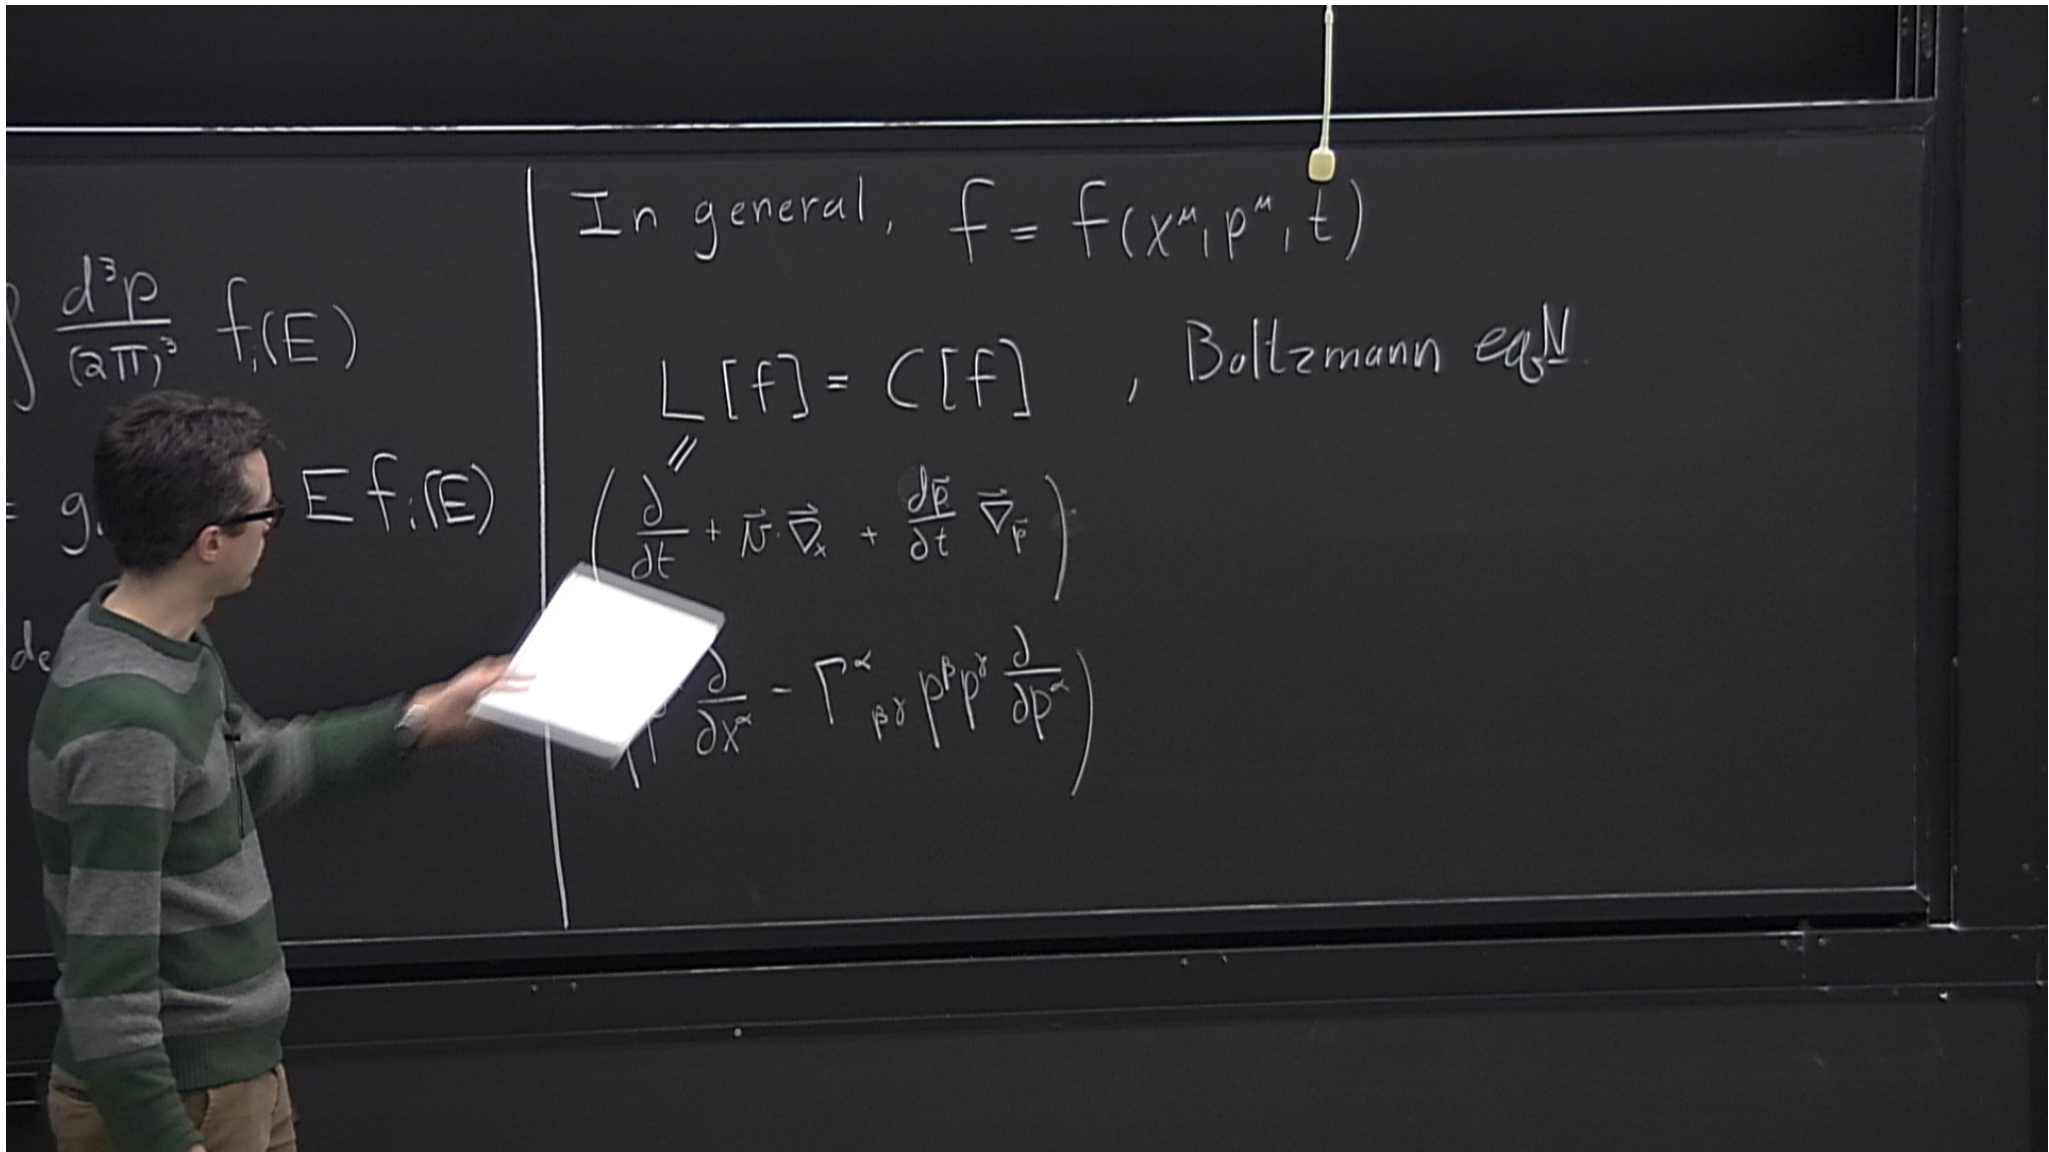 ∫ d³p/(2π)³ fᵢ(E)
= g E fᵢ(E)
de
In general, f = f(x^μ, p^μ, t)
L[f] = C[f] , Boltzmann eqN.
(∂/∂t + v⃗·∇⃗ₓ + dp⃗/dt ∇⃗_p⃗)
(p ∂/∂x^α - Γ^α_βγ p^β p^γ ∂/∂p^α)